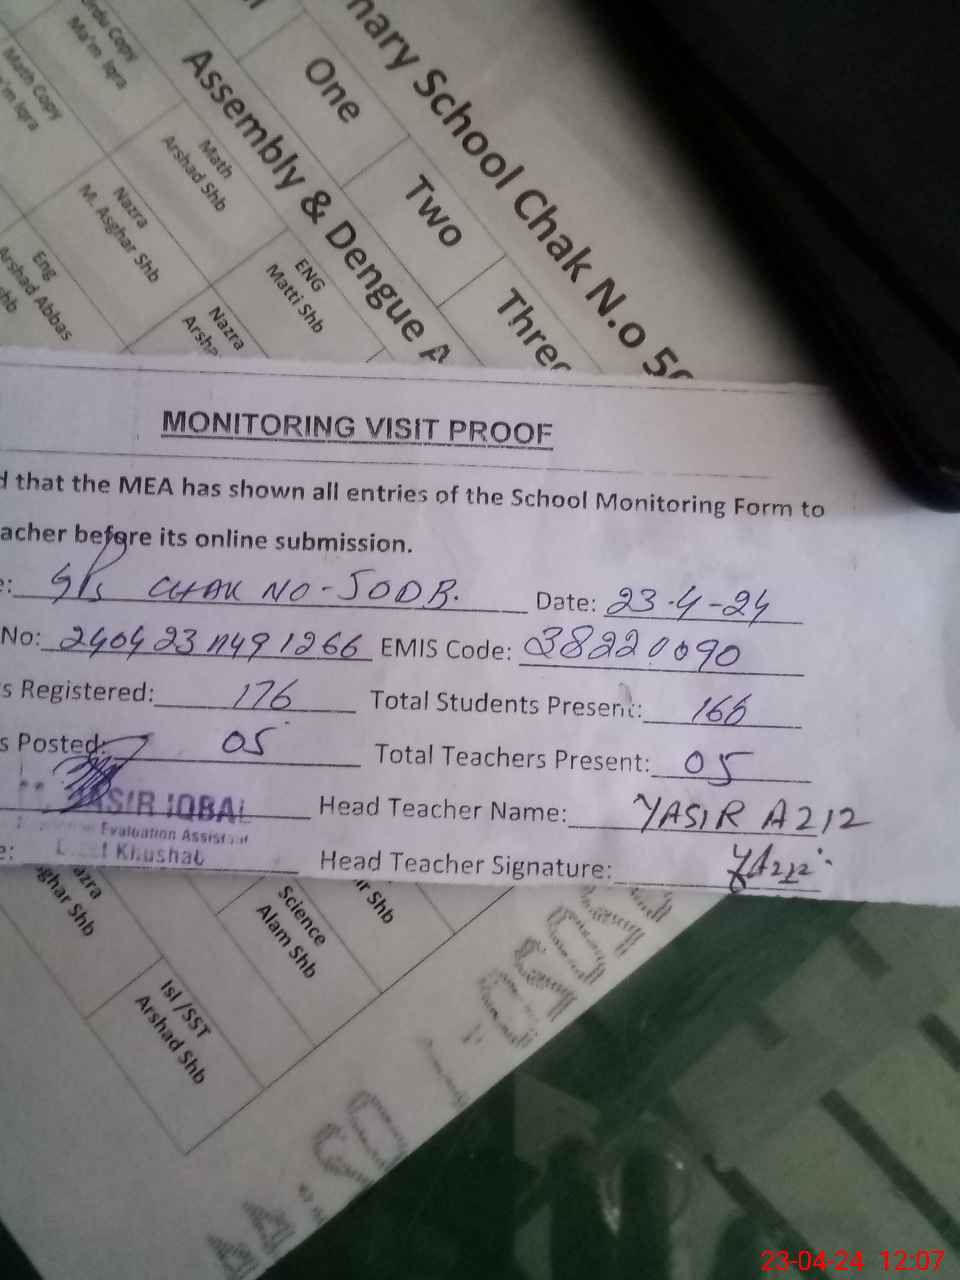 nary School Chak N.o
Assembly & Dengue A
One
Two
Three
Urdu Copy
Ma'm Iqra
Math Copy
Ma'm Iqra
Math
Arshad Shb
Nazra
M. Asghar Shb
Eng
Arshad Abbas
shb
ENG
Matti Shb
Nazra
Arsha
MONITORING VISIT PROOF
d that the MEA has shown all entries of the School Monitoring Form to
acher before its online submission.
e: GPS CHAK NO-50DB. Date: 23-4-24
No: 24042311491266 EMIS Code: 38220090
s Registered: 176 Total Students Present: 166
s Posted: 05 Total Teachers Present: 05
YASIR IQBAL Head Teacher Name: YASIR AZIZ
Evaluation Assistant
Khushab Head Teacher Signature:
azra
ghar Shb
Science
Alam Shb
ir Shb
Isl /SST
Arshad Shb
23-04-24 12:07